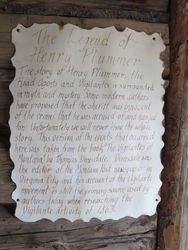 The Legend of
Henry Plummer
The story of Henry Plummer, the
Road Agents and Vigilantes is surrounded
in myth and mystery. Some modern authors
have proposed that the sheriff was innocent
of the crimes that he was accused of and hanged
for. Unfortunately we will never know the whole
story. This version of the events that occurred
here was taken from the book "The Vigilantes of
Montana" by Thomas Dimsdale. Dimsdale was
the editor of the Montana Post newspaper in
Virginia City and his account of the Vigilante
movement is still the primary source used by
authors today when researching the
Vigilante activity of 1863.